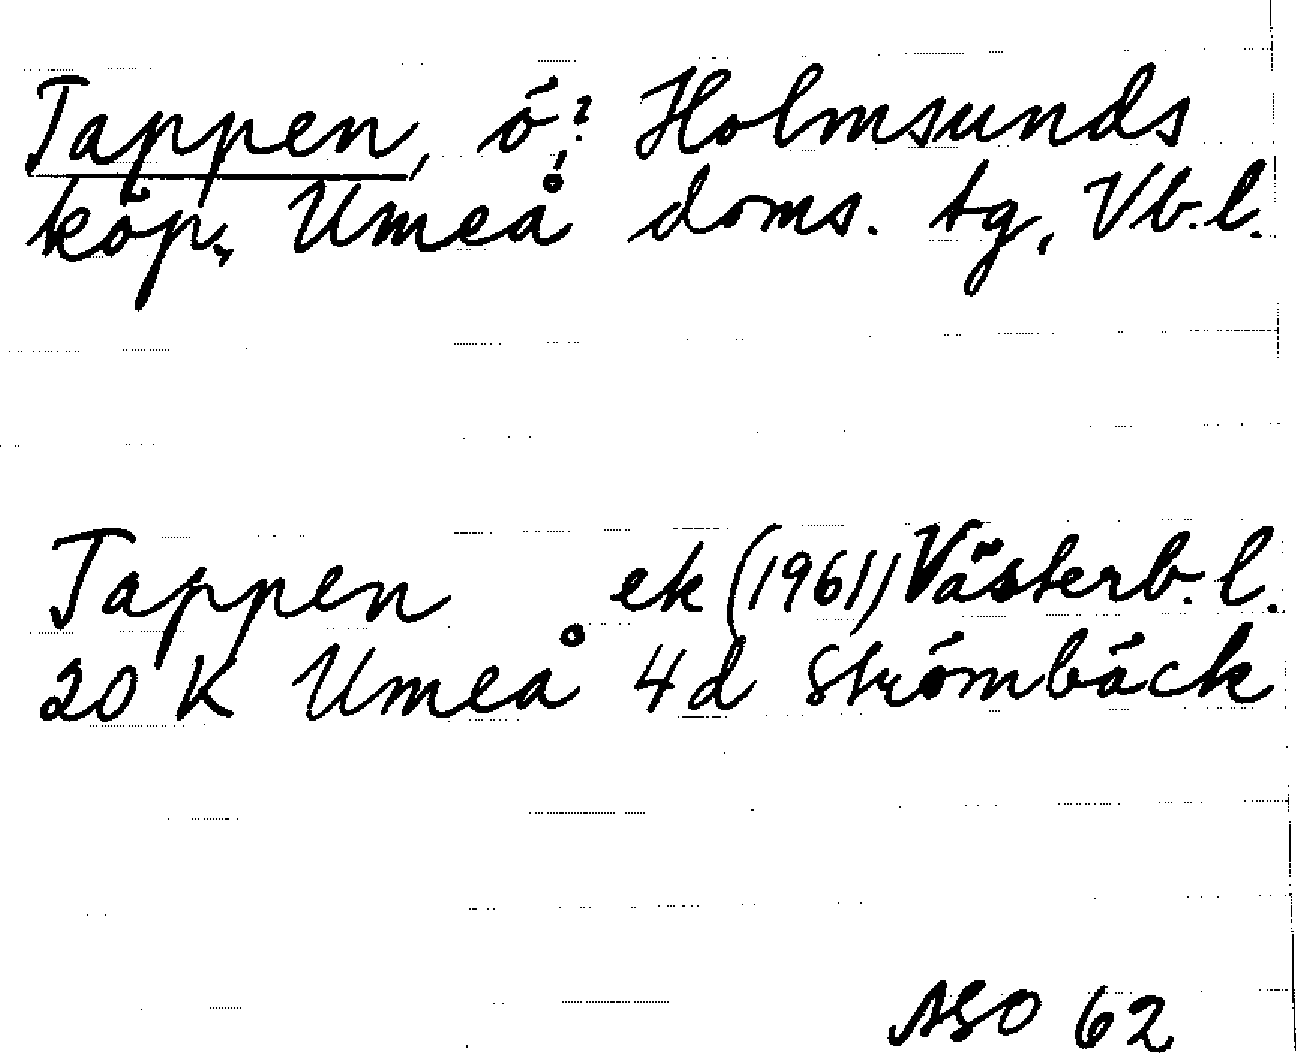 Tappen, ö,? Holmsunds
köp., Umeå doms. tg, Vb. l.
Tappen ek (1961) Västerb. l.
20 K Umeå 4d Strömbäck
ASO 62